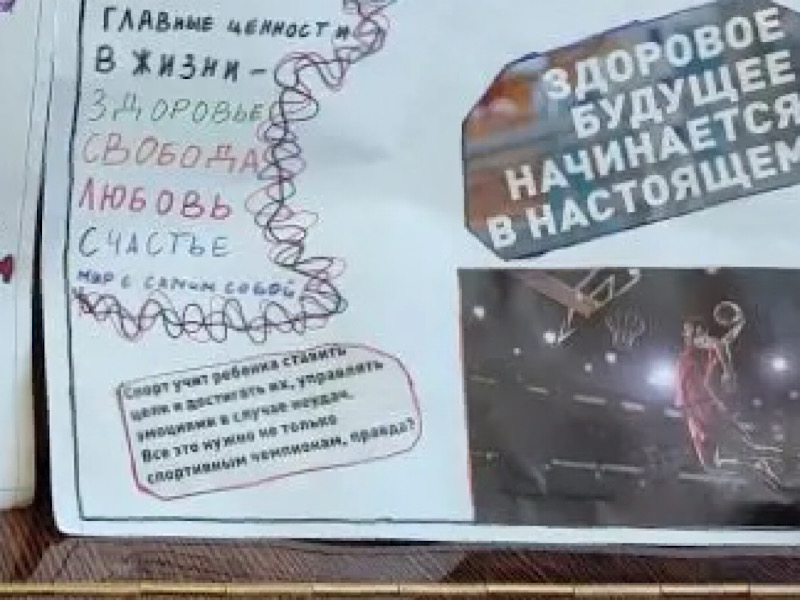 ГЛАВНЫЕ ЦЕННОСТИ
В ЖИЗНИ –
ЗДОРОВЬЕ
СВОБОДА
ЛЮБОВЬ
СЧАСТЬЕ
МИР С САМИМ СОБОЙ
Спорт учит ребенка ставить
цели и достигать их, управлять
эмоциями в случае неудач.
Все это нужно не только
спортивным чемпионам, правда?
ЗДОРОВОЕ
БУДУЩЕЕ
НАЧИНАЕТСЯ
В НАСТОЯЩЕМ